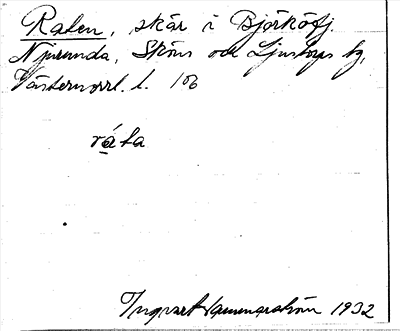 Raten, skär i Björköfj.
Njurunda, Sköns och Ljustorps tg,
Västernorrl. l. 106
ráta
Ingvart Hammarström 1932